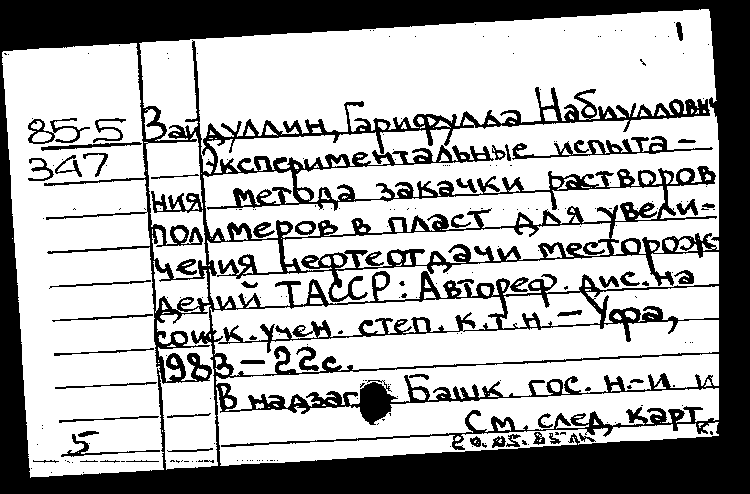 1
85-5 Зайдуллин, Гарифулла Набиуллович
347 Экспериментальные испыта-
ния метода закачки растворов
полимеров в пласт для увели-
чения нефтеотдачи месторож-
дений ТАССР: Автореф. дис. на
соиск. учен. степ. к.т.н. – Уфа,
1983. – 22с.
В надзаг. Башк. гос. н.-и. и
5 См. след. карт.